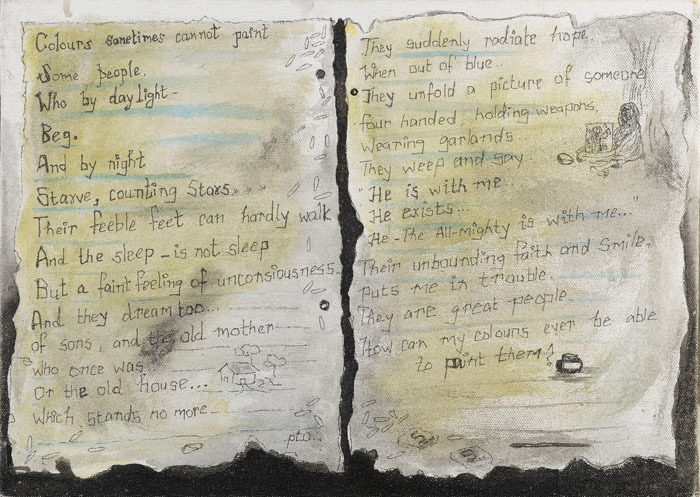 Colours sometimes cannot paint
Some people.
Who by day light-
Beg.
And by night
Starve, counting Stars..
Their feeble feet can hardly walk
And the sleep - is not sleep
But a faint feeling of unconsiousness.
And they dream too...
of sons, and the old mother
who once was.
Or the old house...
which stands no more
pto..
They suddenly radiate hope.
When out of blue..
They unfold a picture of someone
four handed, holding weapons.
Wearing garlands...
They weep and say..
"He is with me..
He exists...
He - The All-mighty is with me..."
Their unbounding faith and Smile,
puts me in trouble.
They are great people.
How can my colours ever be able
to paint them?